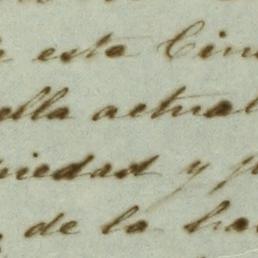 este Ciu
ella actual
piedad y p
de la ha